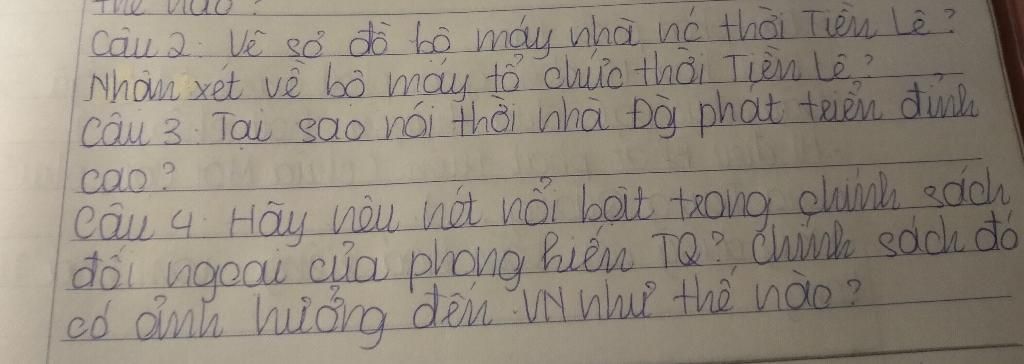 thế nào?
Câu 2. Vẽ sơ đồ bộ máy nhà nc thời Tiền Lê?
Nhận xét về bộ máy tổ chức thời Tiền Lê?
Câu 3. Tại sao nói thời nhà Đg phát triển đỉnh
cao?
Câu 4. Hãy nêu nét nổi bật trong chính sách
đối ngoại của phong kiến TQ? Chính sách đó
có ảnh hưởng đến VN như thế nào?